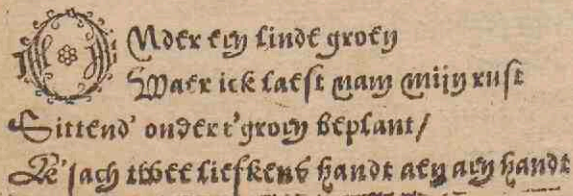 ONder een linde groen
Waer ick laest nam mijn rust
Sittend' onder t'groen beplant/
Ick sach twee liefkens handt aen aen handt